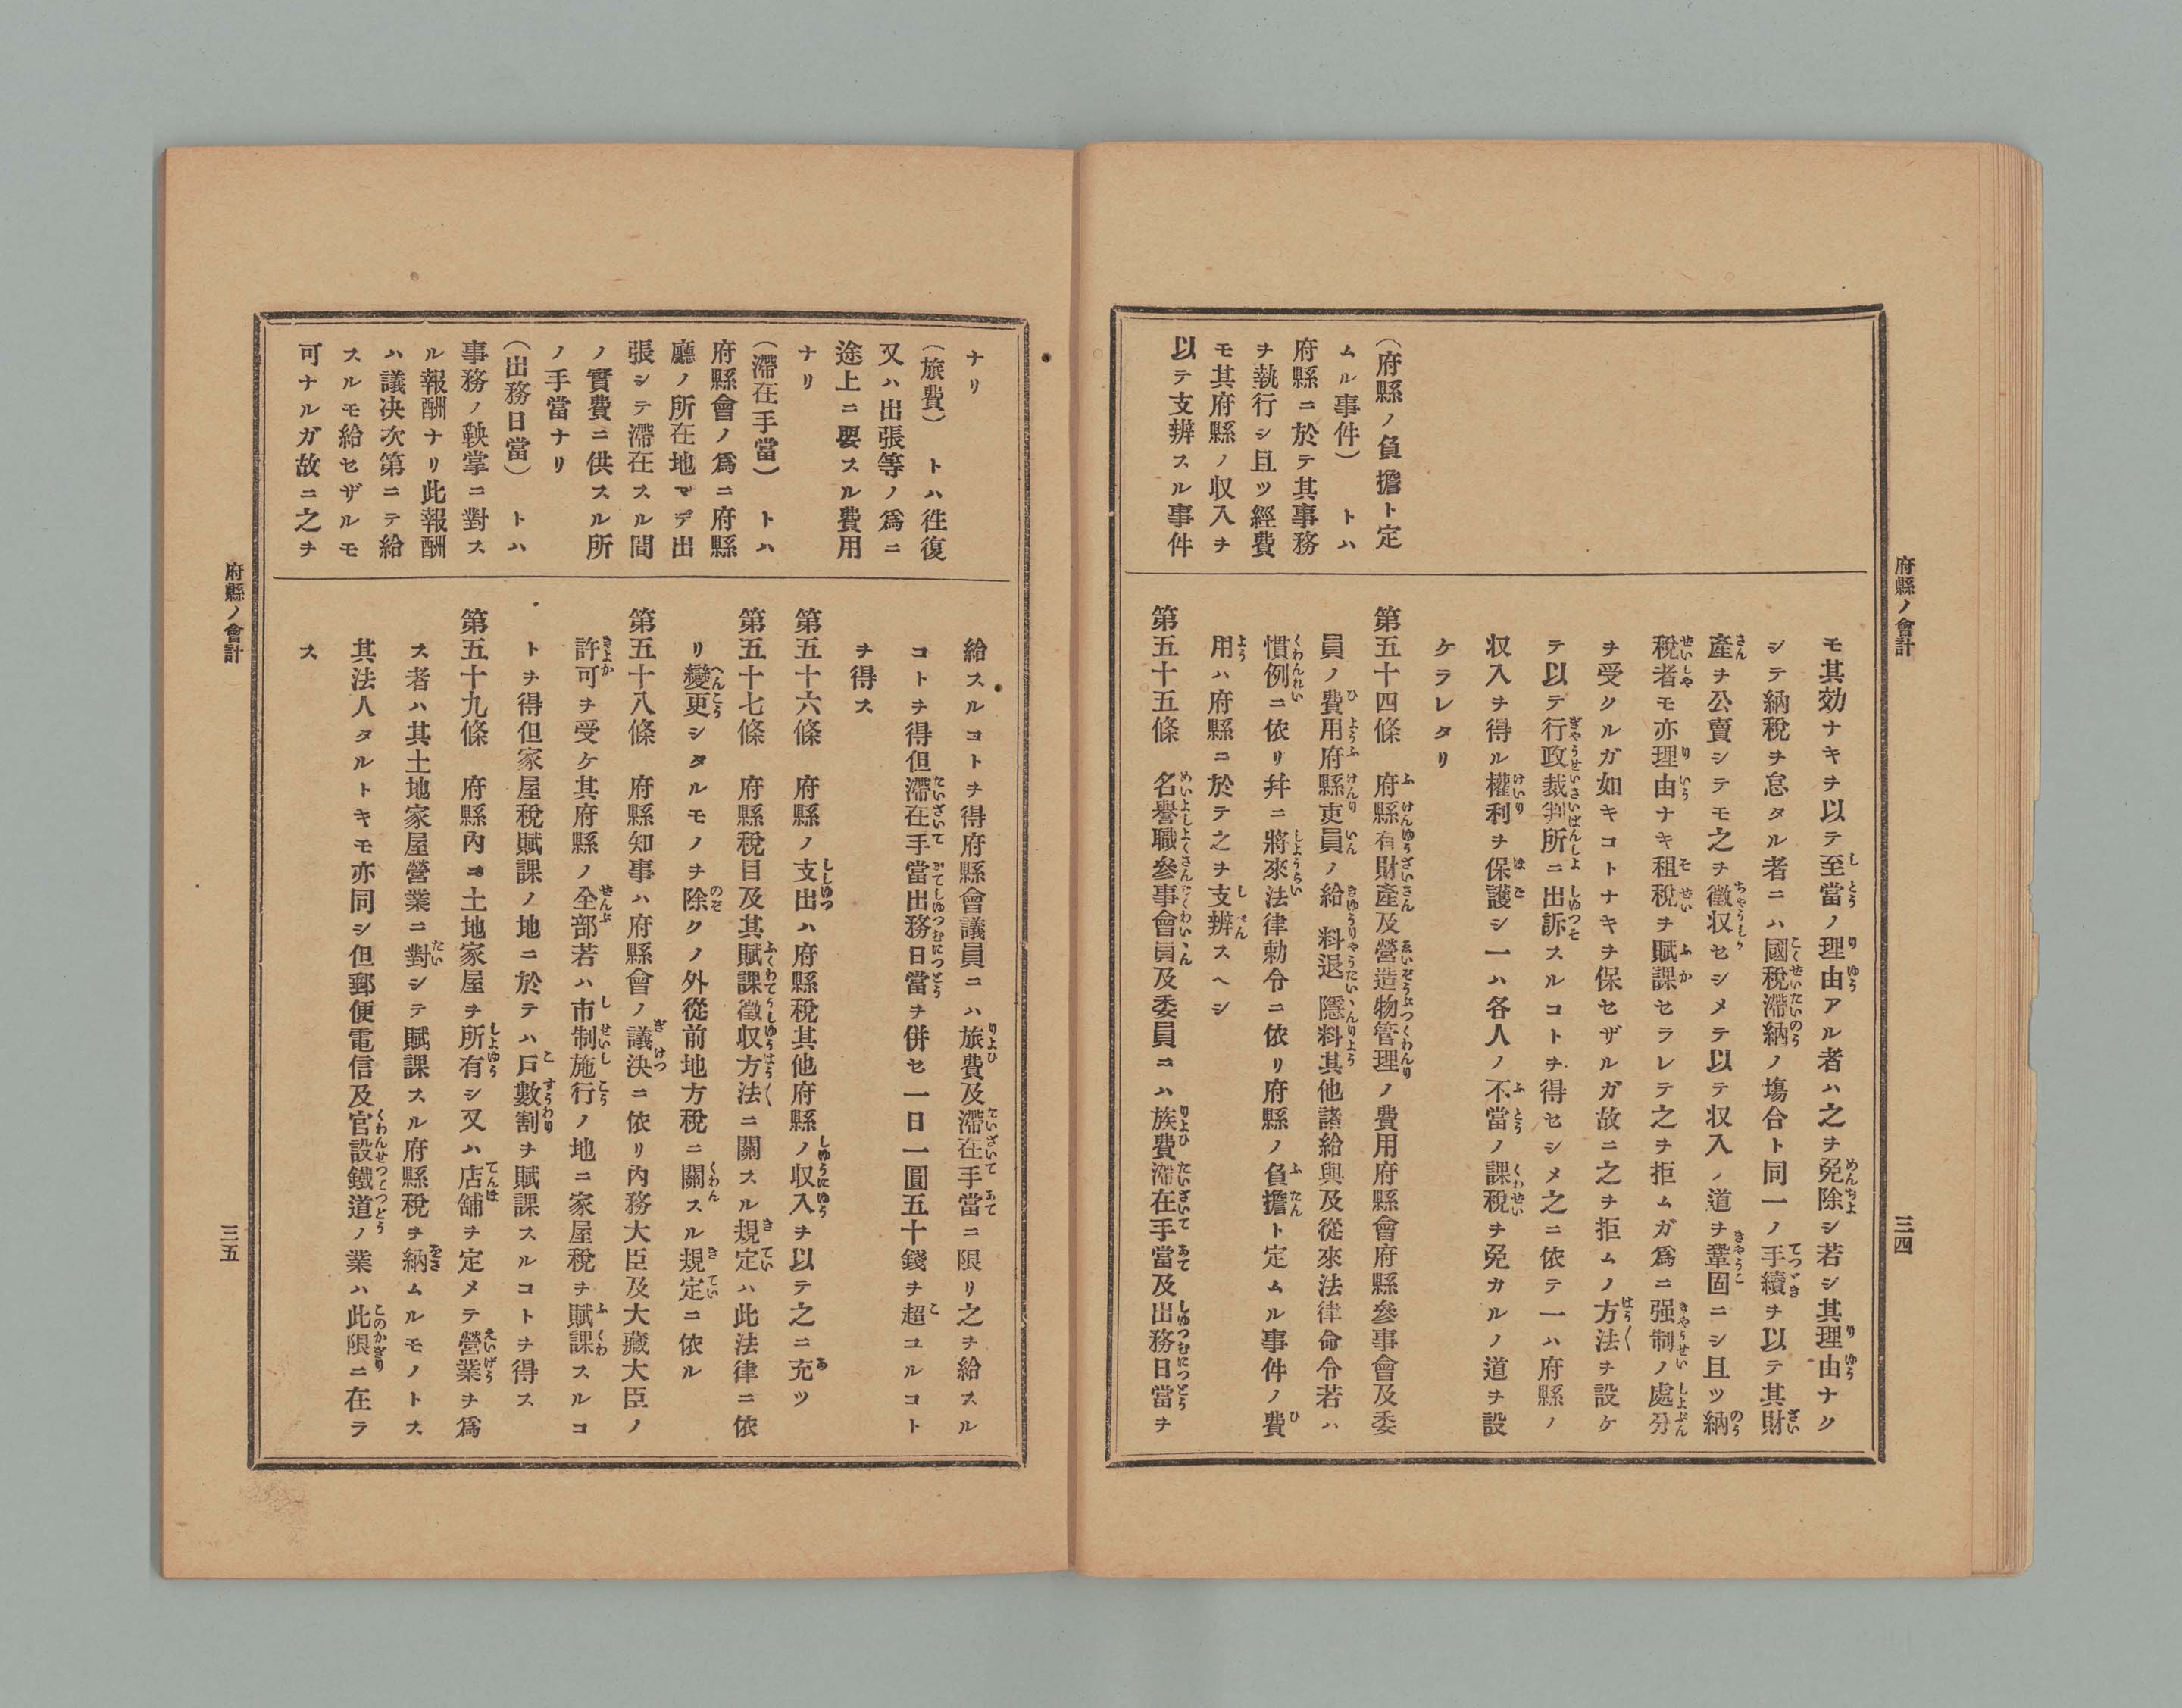 府縣ノ會計
三四
(府縣ノ負擔ト定
ムル事件) トハ
府縣ニ於テ其事務
ヲ執行シ且ツ經費
モ其府縣ノ収入ヲ
以テ支辨スル事件
モ其効ナキヲ以テ至當ノ理由アル者ハ之ヲ免除シ若シ其理由ナク
シテ納税ヲ怠タル者ニハ國税滯納ノ塲合ト同一ノ手續ヲ以テ其財
產ヲ公賣シテモ之ヲ徵収セシメテ以テ収入ノ道ヲ鞏固ニシ且ツ納
税者モ亦理由ナキ租税ヲ賦課セラレテ之ヲ拒ムガ爲ニ强制ノ處分
ヲ受クルガ如キコトナキヲ保セザルガ故ニ之ヲ拒ムノ方法ヲ設ケ
テ以テ行政裁判所ニ出訴スルコトヲ得セシメ之ニ依テ一ハ府縣ノ
収入ヲ得ル權利ヲ保護シ一ハ各人ノ不當ノ課税ヲ免カルノ道ヲ設
ケラレタリ
第五十四條 府縣有財產及營造物管理ノ費用府縣會府縣參事會及委
員ノ費用府縣吏員ノ給料退隱料其他諸給與及從來法律命令若ハ
慣例ニ依リ幷ニ將來法律勅令ニ依リ府縣ノ負擔ト定ムル事件ノ費
用ハ府縣ニ於テ之ヲ支辨スヘシ
第五十五條 名譽職參事會員及委員ニハ族費滯在手當及出務日當ヲ
ナリ
(旅費) トハ徃復
又ハ出張等ノ爲ニ
途上ニ要スル費用
ナリ
(滯在手當) トハ
府縣會ノ爲ニ府縣
廳ノ所在地マデ出
張シテ滯在スル間
ノ實費ニ供スル所
ノ手當ナリ
(出務日當) トハ
事務ノ鞅掌ニ對ス
ル報酬ナリ此報酬
ハ議决次第ニテ給
スルモ給セザルモ
可ナルガ故ニ之ヲ
給スルコトヲ得府縣會議員ニハ旅費及滯在手當ニ限リ之ヲ給スル
コトヲ得但滯在手當出務日當ヲ併セ一日一圓五十錢ヲ超コユルコト
ヲ得ス
第五十六條 府縣ノ支出ハ府縣税其他府縣ノ収入ヲ以テ之ニ充ツ
第五十七條 府縣税目及其賦課徵収方法ニ關スル規定ハ此法律ニ依
リ變更シタルモノヲ除クノ外從前地方税ニ關スル規定ニ依ル
第五十八條 府縣知事ハ府縣會ノ議決ニ依リ内務大臣及大藏大臣ノ
許可ヲ受ケ其府縣ノ全部若ハ市制施行ノ地ニ家屋税ヲ賦課スルコ
トヲ得但家屋税賦課ノ地ニ於テハ戸數割ヲ賦課スルコトヲ得ス
第五十九條 府縣内ニ土地家屋ヲ所有シ又ハ店舗ヲ定メテ營業ヲ爲
ス者ハ其土地家屋營業ニ對シテ賦課スル府縣税ヲ納ムルモノトス
其法人タルトキモ亦同シ但郵便電信及官設鐵道ノ業ハ此限ニ在ラ
ス
府縣ノ會計
三五